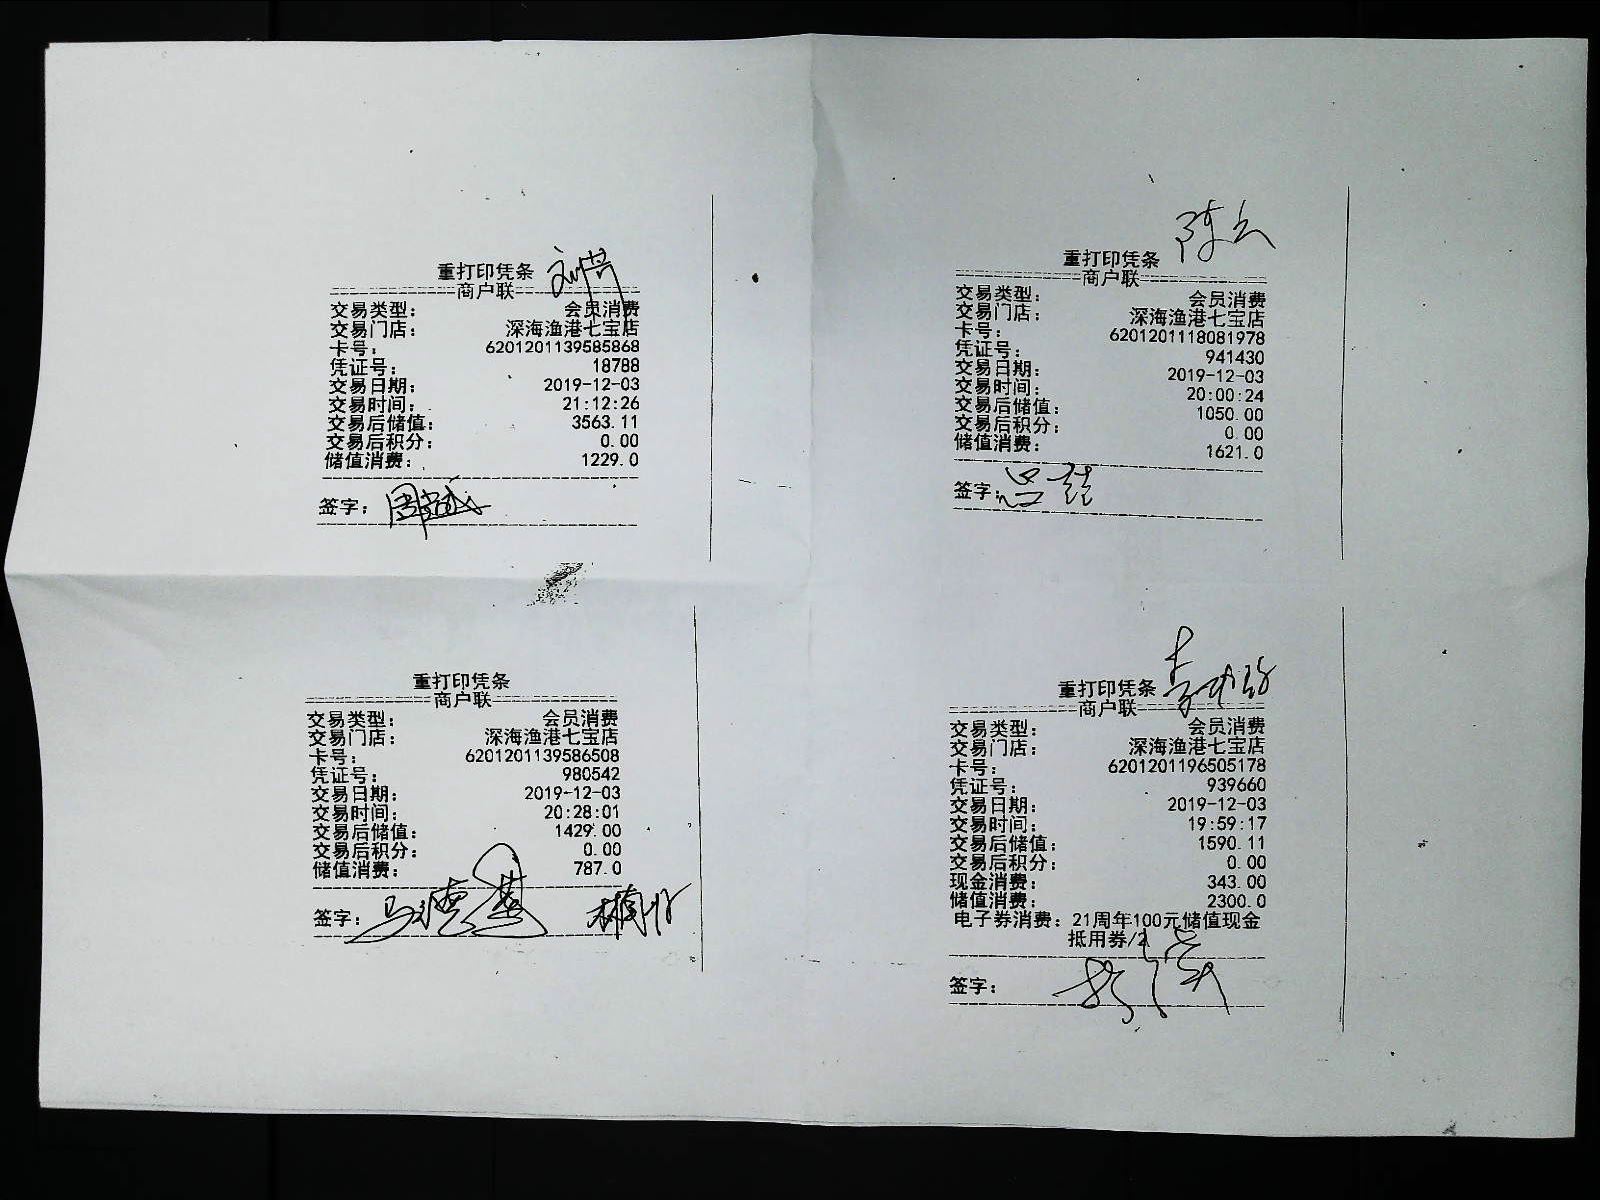 重打印凭条
商户联
交易类型： 会员消费
交易门店： 深海渔港七宝店
卡号： 6201201139585868
凭证号： 18788
交易日期： 2019-12-03
交易时间： 21:12:26
交易后储值： 3563.11
交易后积分： 0.00
储值消费： 1229.0
签字：
陈云
重打印凭条
商户联
交易类型： 会员消费
交易门店： 深海渔港七宝店
卡号： 6201201118081978
凭证号： 941430
交易日期： 2019-12-03
交易时间： 20:00:24
交易后储值： 1050.00
交易后积分： 0.00
储值消费： 1621.0
签字：
重打印凭条
商户联
交易类型： 会员消费
交易门店： 深海渔港七宝店
卡号： 6201201139586508
凭证号： 980542
交易日期： 2019-12-03
交易时间： 20:28:01
交易后储值： 1429.00
交易后积分： 0.00
储值消费： 787.0
签字：
重打印凭条
商户联
交易类型： 会员消费
交易门店： 深海渔港七宝店
卡号： 6201201196505178
凭证号： 939660
交易日期： 2019-12-03
交易时间： 19:59:17
交易后储值： 1590.11
交易后积分： 0.00
现金消费： 343.00
储值消费： 2300.0
电子券消费：21周年100元储值现金
抵用券/2
签字：